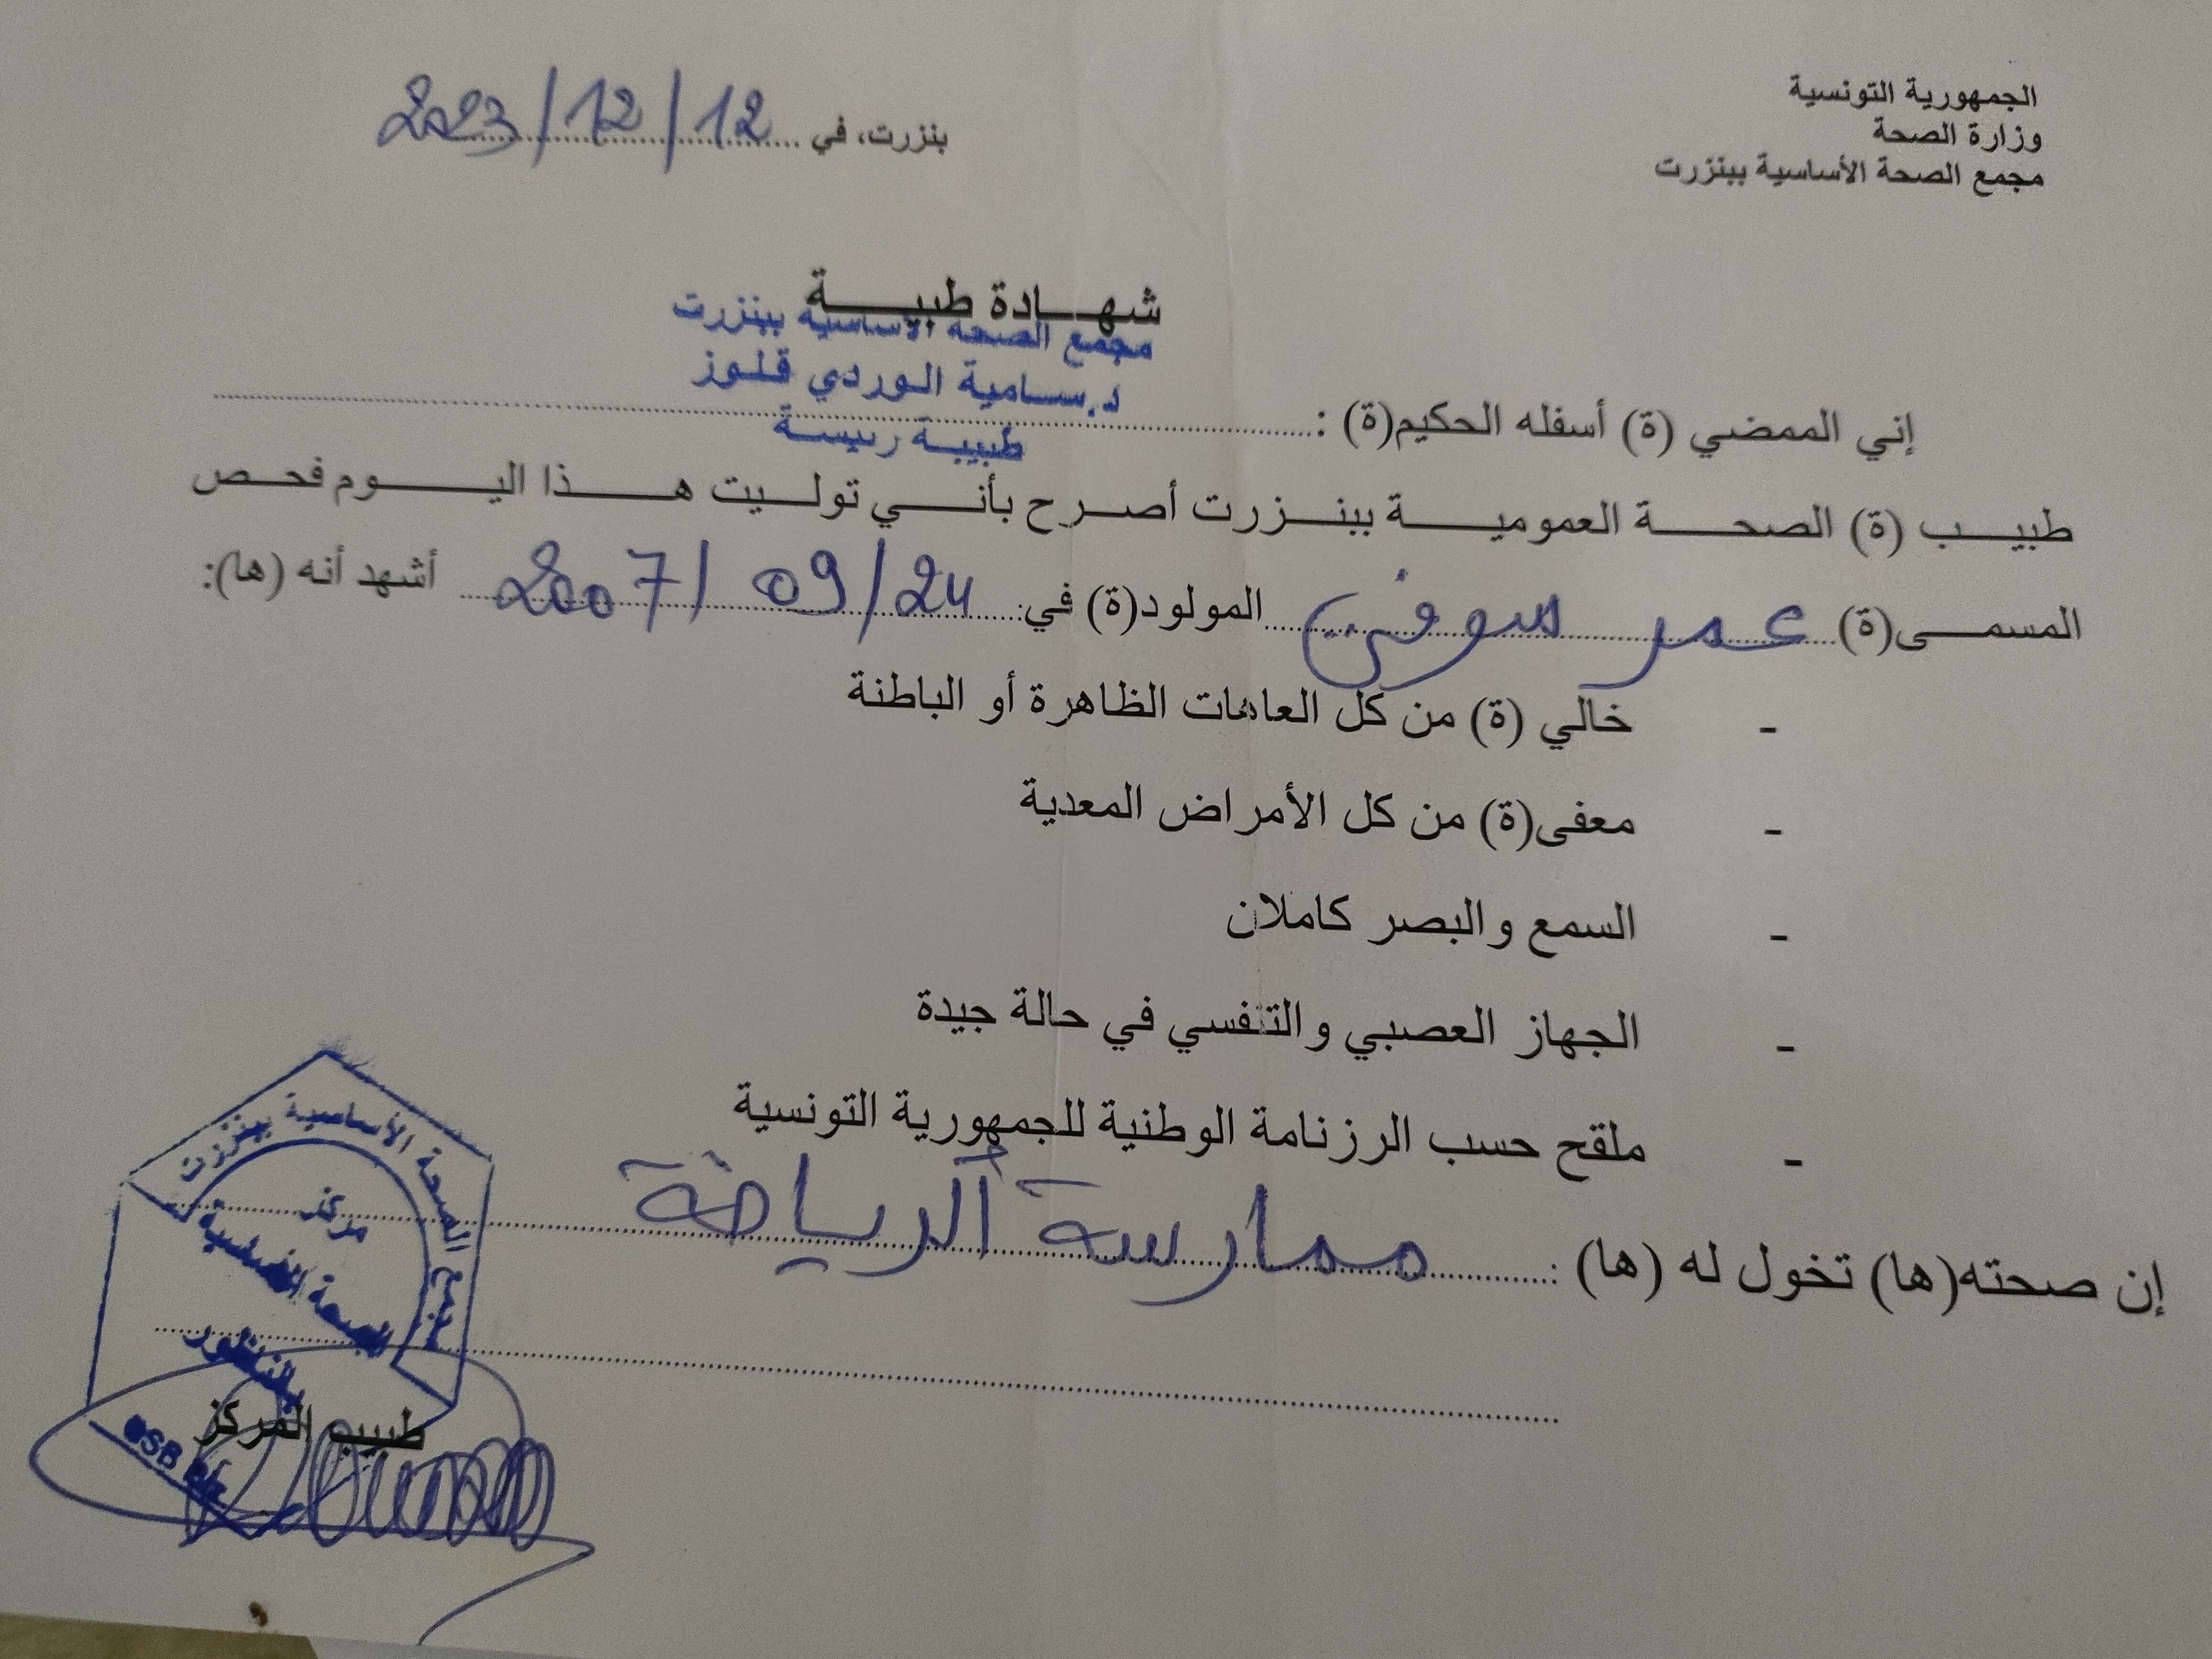 الجمهورية التونسية
وزارة الصحة
مجمع الصحة الأساسية ببنزرت
بنزرت، في 2023/12/12
شهادة طبية
مجمع الصحة الأساسية ببنزرت
د.سامية الوردي قلوز
طبيبة رئيسة
إني الممضي (ة) أسفله الحكيم(ة) :
طبيب (ة) الصحة العمومية ببنزرت أصرح بأني توليت هذا اليوم فحص
المسمى(ة) عمر صوفي المولود(ة) في: 2007/09/24 أشهد أنه (ها):
- خالي (ة) من كل العاهات الظاهرة أو الباطنة
- معفى(ة) من كل الأمراض المعدية
- السمع والبصر كاملان
- الجهاز العصبي والتنفسي في حالة جيدة
- ملقح حسب الرزنامة الوطنية للجمهورية التونسية
إن صحته(ها) تخول له (ها) : ممارسة الرياضة
مجمع الصحة الأساسية ببنزرت
مركز
الصحة الأساسية
بالناظور
طبيب المركز